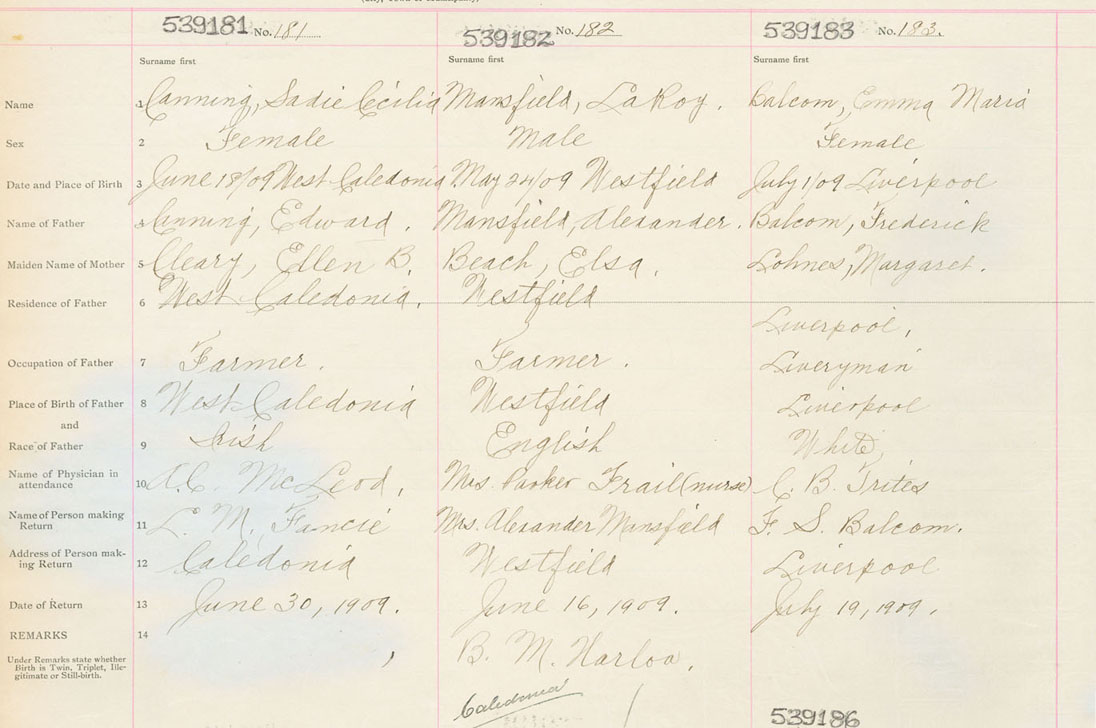 539181 No. 181
539182 No. 182
539183 No. 183.
Surname first Surname first Surname first
Name 1 Canning, Sadie Cecilia Mansfield, LaRoy. Balcom, Emma Maria
Sex 2 Female Male Female
Date and Place of Birth 3 June 18/09 West Caledonia May 24/09 Westfield July 1/09 Liverpool
Name of Father 4 Canning, Edward. Mansfield, Alexander. Balcom, Frederick
Maiden Name of Mother 5 Cleary, Ellen B. Beach, Elsa, Lohnes, Margaret.
Residence of Father 6 West Caledonia. Westfield
Liverpool,
Occupation of Father 7 Farmer. Farmer. Liveryman
Place of Birth of Father 8 West Caledonia Westfield Liverpool
and
Race of Father 9 Irish English White,
Name of Physician in
attendance 10 A.C. McLeod, Mrs. Parker Frail (nurse) C. B. Trites
Name of Person making
Return 11 L. M. Mrs. Alexander Mansfield F. S. Balcom.
Address of Person mak-
ing Return 12 Caledonia Westfield Liverpool
Date of Return 13 June 30, 1909. June 16, 1909. July 19, 1909.
REMARKS 14
B. M.
Under Remarks state whether
Birth is Twin, Triplet, Ille-
gitimate or Still-birth.
Caledonia
539186